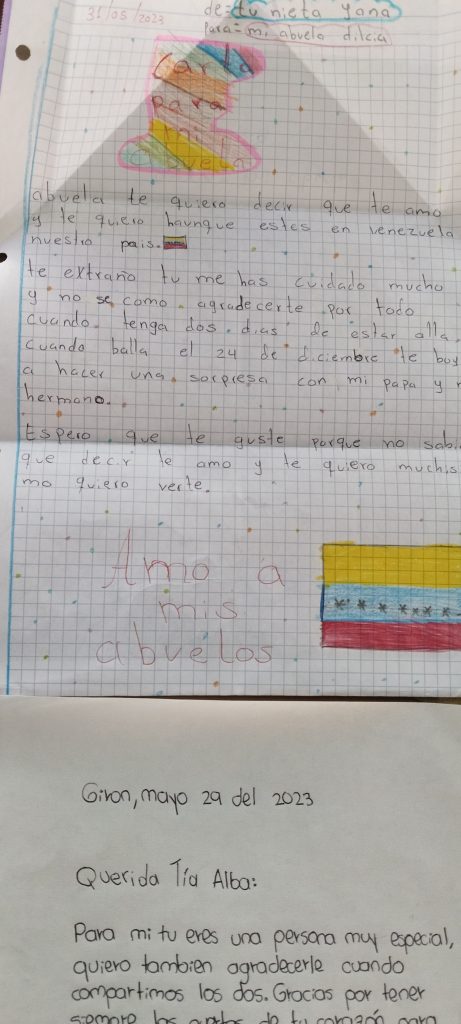 31/05/2023
de=tu nieta yana
para=mi abuela dilcia
Carta
Para
mi
abuela
abuela te quiero decir que te amo
y te quiero haunque estes en venezuela
nuestro pais.
te extraño tu me has cuidado mucho
y no se como agradecerte por todo
cuando tenga dos dias de estar alla
cuando balla el 24 de diciembre te boy
a hacer una sorpresa con mi papa y
hermano.
Espero que te guste porque no sabi
que decir te amo y te quiero muchis
mo quiero verte.
Amo a
mis
abuelos
Giron, mayo 29 del 2023
Querida Tía Alba:
Para mi tu eres una persona muy especial,
quiero tambien agradecerle cuando
compartimos los dos. Gracias por tener
siempre las de tu corazón para